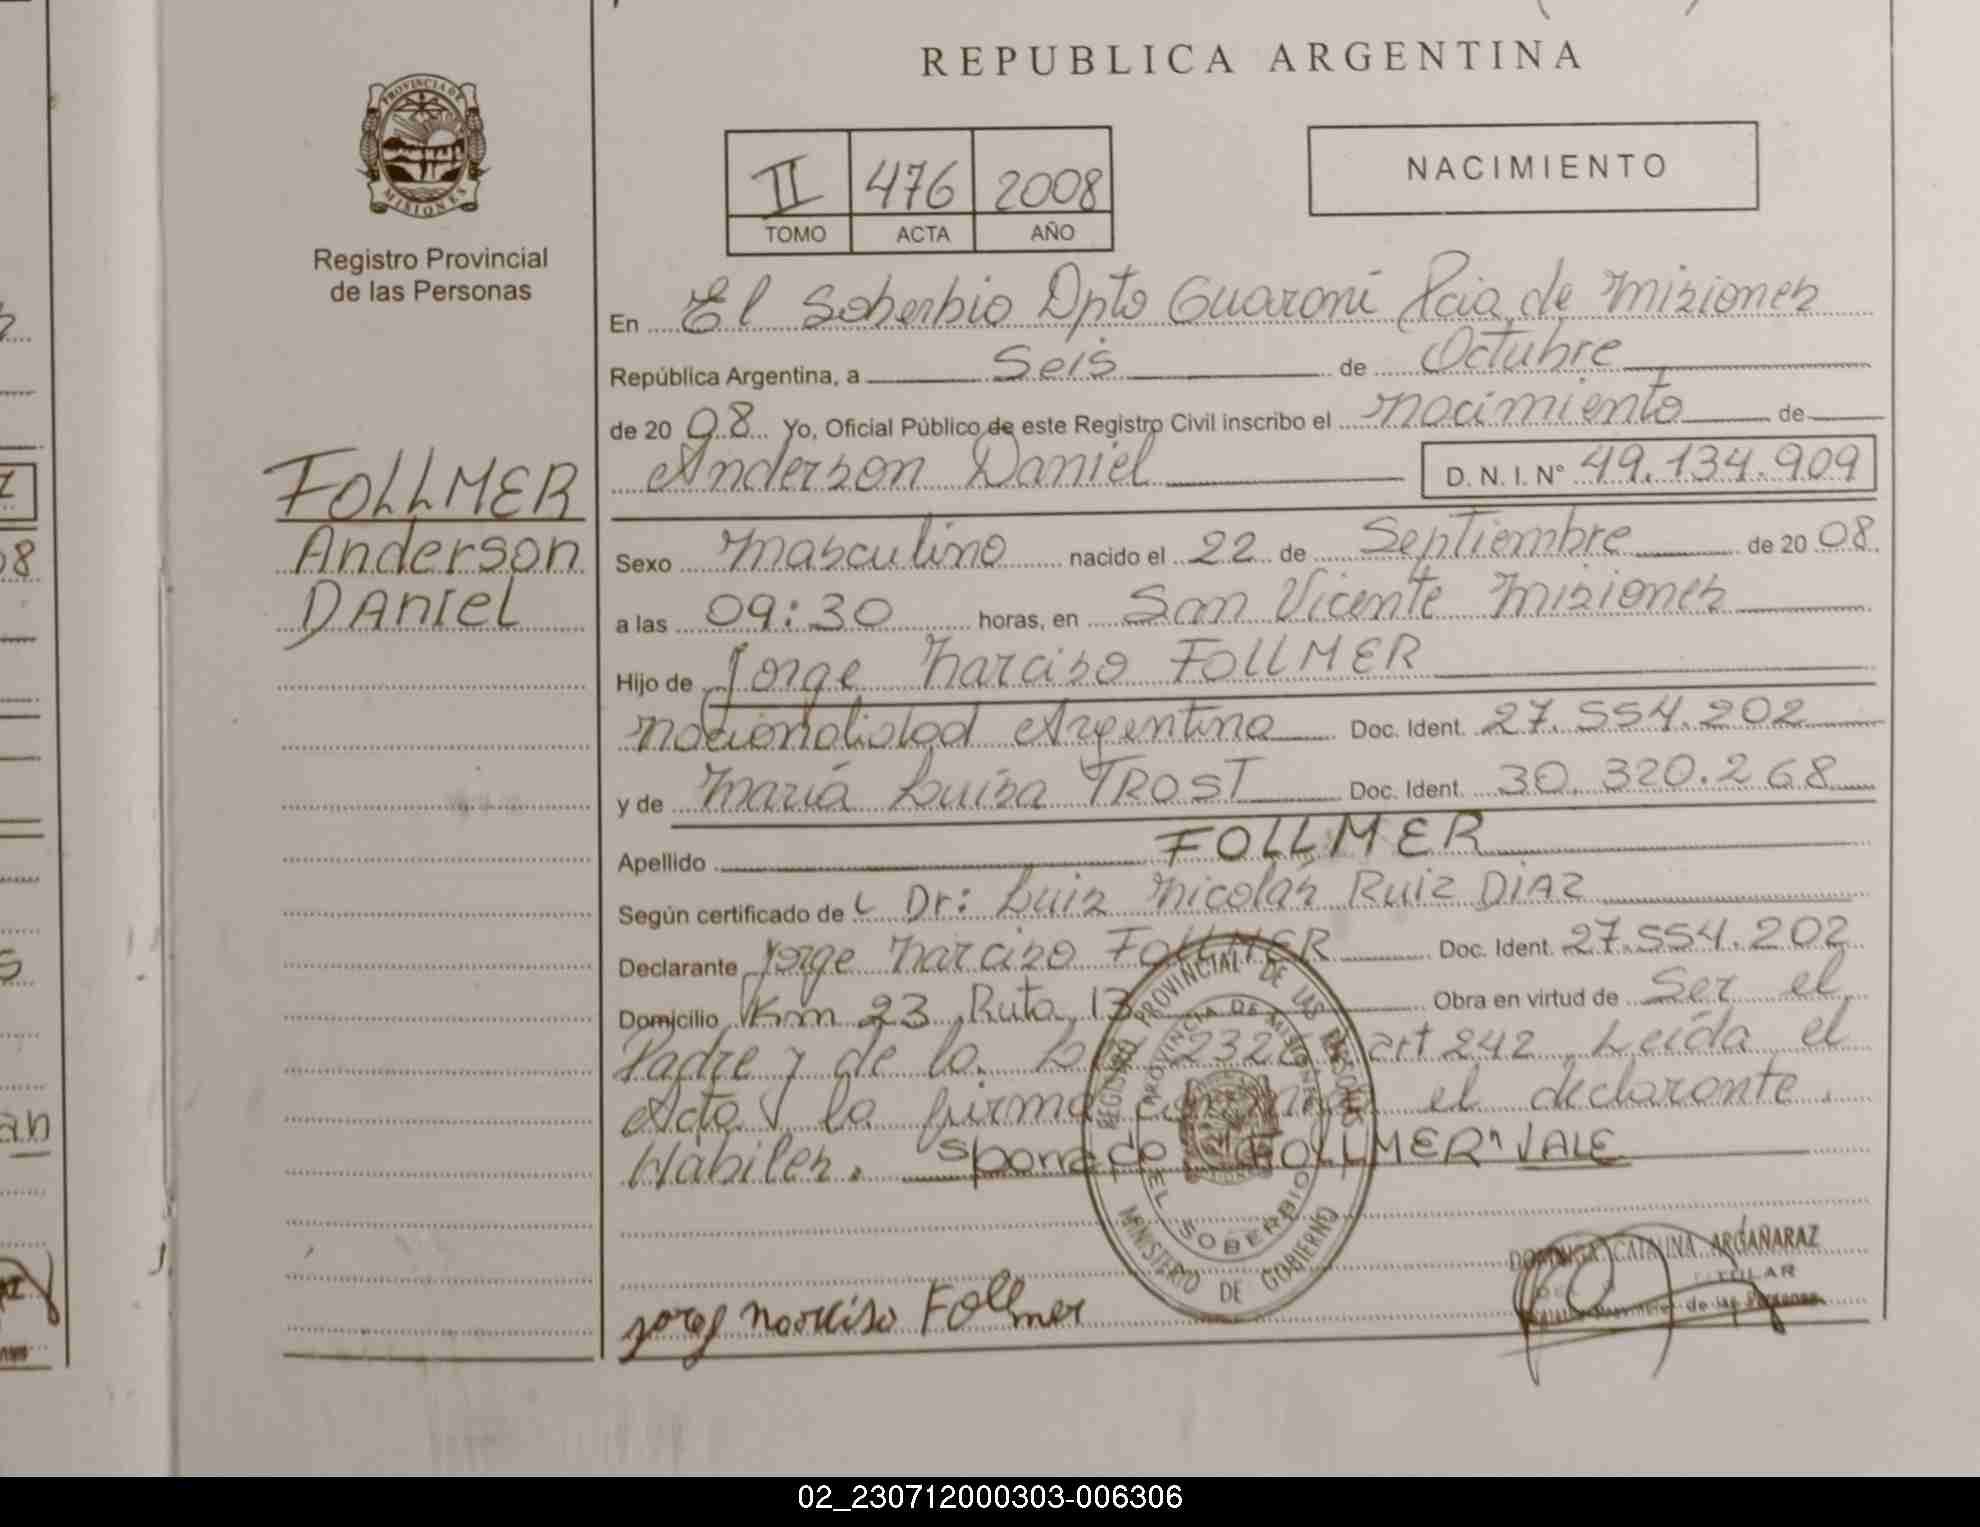 REPUBLICA ARGENTINA
PROVINCIA DE
MISIONES
Registro Provincial
de las Personas
II 476 2008
TOMO ACTA AÑO
NACIMIENTO
En El Soberbio Dpto Guaraní Pcia de Misiones
República Argentina, a Seis de Octubre
de 20 08 Yo, Oficial Público de este Registro Civil inscribo el nacimiento de
Anderson Daniel D. N. I. N° 49.134.909
FOLLMER
Anderson
DANIEL
Sexo masculino nacido el 22 de Septiembre de 20 08
a las 09:30 horas, en San Vicente Misiones
Hijo de Jorge Narciso FOLLMER
nacionalidad Argentina Doc. Ident. 27.554.202
y de María Luisa TROST Doc. Ident. 30.320.268
Apellido FOLLMER
Según certificado de Dr: Luis Nicolás Ruiz DIAZ
Declarante Jorge Narciso FOLLMER Doc. Ident. 27.554.202
Domicilio Km 23 Ruta 13 Obra en virtud de Ser el
Padre y de la art 242 Leída el
Acta la firma el declarante.
Habiles. FOLLMER" VALE
REGISTRO PROVINCIAL DE LAS PERSONAS
PROVINCIA DE MISIONES
EL SOBERBIO
MINISTERIO DE GOBIERNO
CATALINA ARGAÑARAZ
TITULAR
de las Personas
Narciso Follmer
02_230712000303-006306